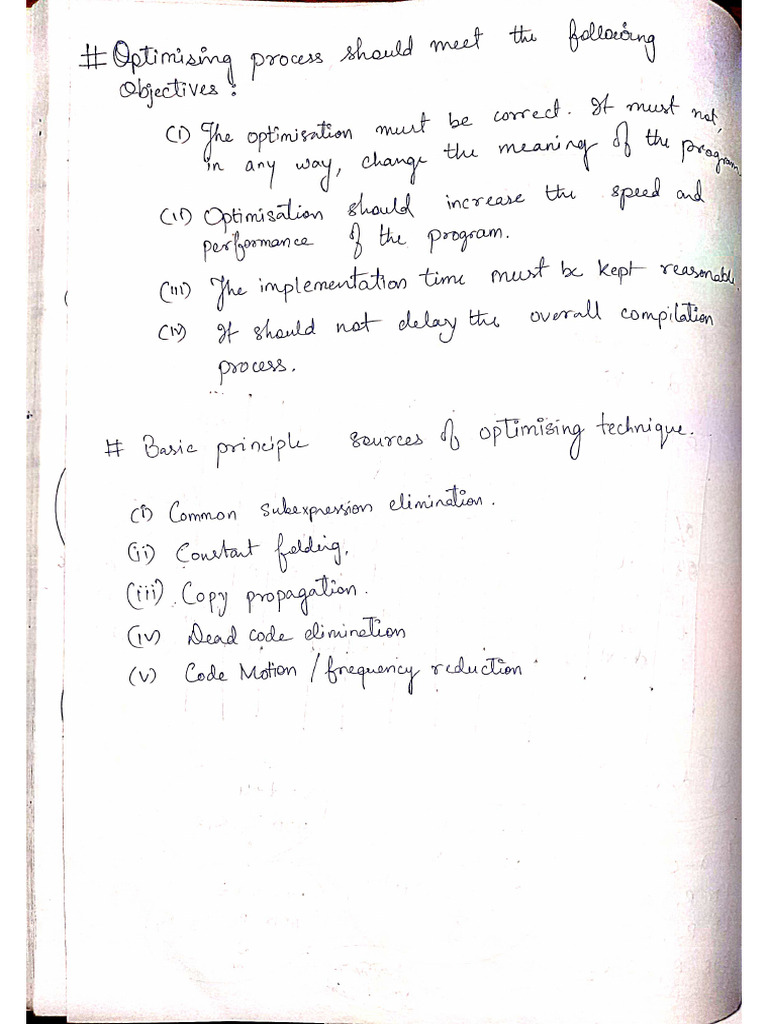 # Optimising process should meet the following
Objectives :
(i) The optimisation must be correct. It must not,
in any way, change the meaning of the program.
(ii) Optimisation should increase the speed and
performance of the program.
(iii) The implementation time must be kept reasonable.
(iv) It should not delay the overall compilation
process.
# Basic principle sources of optimising technique.
(i) Common subexpression elimination.
(ii) Constant folding,
(iii) Copy propagation.
(iv) Dead code elimination
(v) Code Motion / frequency reduction